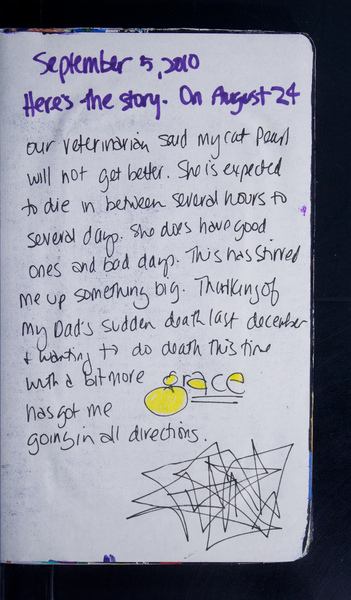 September 5, 2010
Here's the story. On August 24
our veterinarian said my cat Pearl
will not get better. She is expected
to die in between several hours to
several days. She does have good
ones and bad days. This has stirred
me up something big. Thinking of
my Dad's sudden death last december
+ wanting to do death this time
with a bit more grace
has got me
going in all directions.